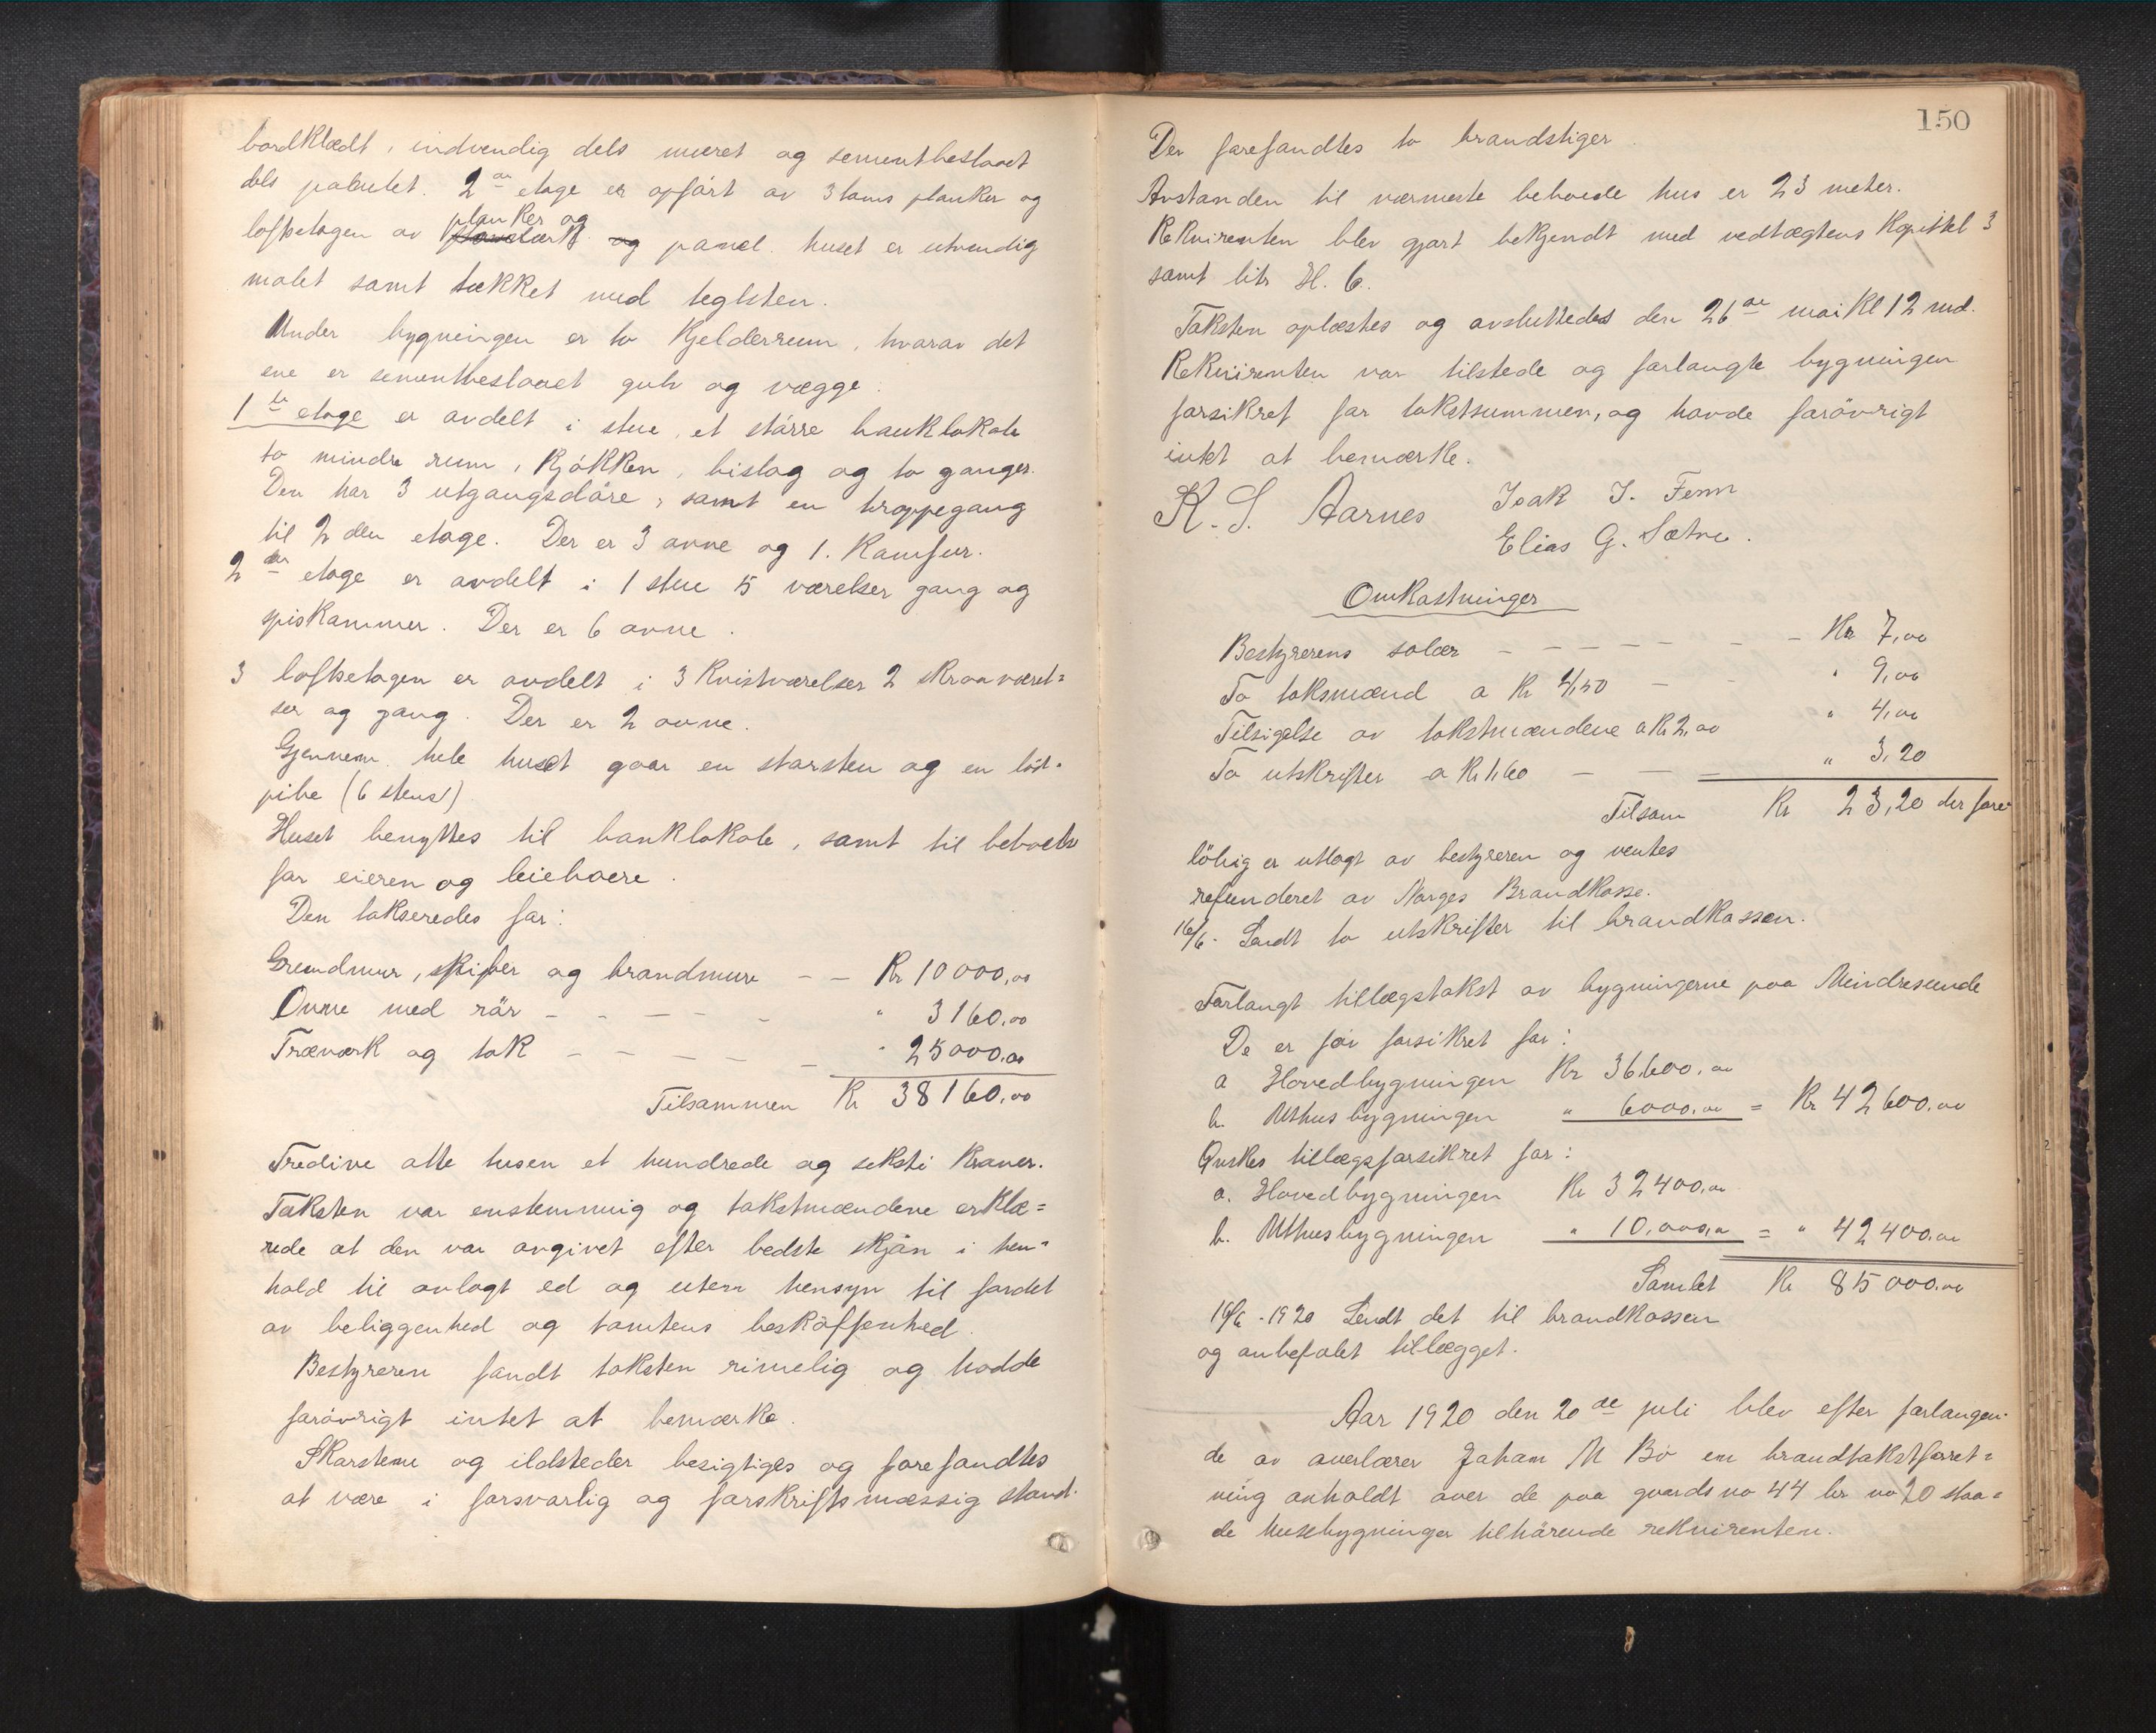 bordklædt, indvendig dels muret og sementbeslaaet
dels panelet. 2den etage er opført av 3 toms planker og
loftsetagen av planker og panel. huset er utvendig
malet samt tækket med teglsten.
Under bygningen er to kjelderrum, hvorav det
ene er sementbeslaaet gulv og vægge.
1ste etage er avdelt i stue, et större banklokale
to mindre rum, kjökken, bislag og to ganger.
Den har 3 utgangsdöre, samt en trappegang
til 2den etage. Der er 3 ovne og 1. kamfur.
2den etage er avdelt i 1 stue 5 værelser gang og
spiskammer. Der er 6 ovne.
3 loftsetagen er avdelt i 3 kvistværelser 2 skraaværel=
ser og gang. Der er 2 ovne.
Gjennem hele huset gaar en skorsten og en
pibe (6 stens)
Huset benyttes til banklokale, samt til beboelse
for eieren og leieboere.
Den takseredes for:
Grundmur, piper og brandmure – – Kr 10000,00
Ovne med rör – – – – – " 3160,00
Træverk og tak – – – – – " 25000.00
Tilsammen Kr 38160,00
Tredive otte tusen et hundrede og seksti kroner.
Taksten var enstemmig og takstmændene erklæ=
rede at den var avgivet efter bedste skjön i hen=
hold til avlagt ed og uten hensyn til fordel
av beliggenhed og tomtens beskaffenhed.
Bestyreren fandt taksten rimelig og hadde
forövrigt intet at bemærke.
Skorstene og ildsteder besigtiges og forefandtes
at være i forsvarlig og forskriftsmæssig stand.
150
Der forefandtes to brandstiger.
Avstanden til nærmeste beboede hus er 23 meter.
Rekvirenten blev gjort bekjendt med vedtægtens kapitel 3
samt litr H. 6.
Taksten oplæstes og avsluttedes den 26de mai Kl 12 md.
Rekvirenten var tilstede og forlangte bygningen
forsikret for takstsummen, og havde forövrigt
intet at bemærke.
K. S. Aarnes Isak J. Fenn
Elias G. Sætre.
Omkostninger
Bestyrerens salær – – – – – – Kr 7,00
To taksmænd a Kr 4,50 – – " 9,00
Tilsigelse av takstmændene a Kr 2,00 " 4,00
To utskrifter a Kr 1,60 – – – " 3,20
Tilsam Kr 23,20 der fore-
löbig er utlagt av bestyreren og ventes
refunderet av Norges Brandkasse.
16/6. Sendt to utskrifter til brandkassen.
Forlangt tillægstakst av bygningerne paa Mindresunde
De er för forsikret for:
a Hovedbygningen Kr 36.600.00
b. Uthusbygningen " 6000.00 = Kr 42600.00
Önskes tillægsforsikret for:
a. Hovedbygningen Kr 32400.00
b. Uthusbygningen " 10.000,00 = " 42400.00
Samlet Kr 85000.00
16/6 - 1920 Sendt det til brandkassen
og anbefalet tillægget.
Aar 1920 den 20de juli blev efter forlangen-
de av overlærer Johan M Bö en brandtakstforret=
ning avholdt over de paa gaards no 44 br no 20 staa=
de husebygninger tilhörende rekvirenten.